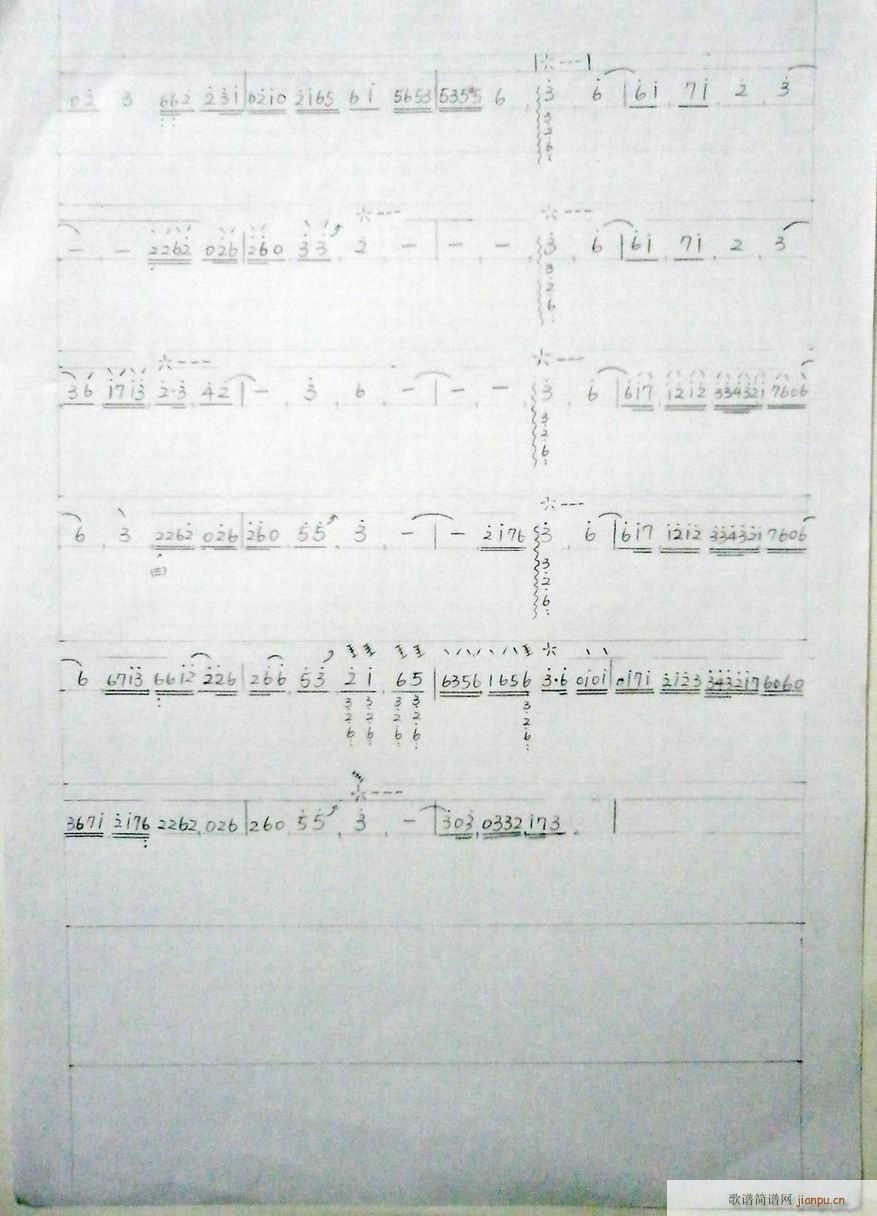 02̇ 3 662̇ 2̇3̇1̇ | 02̇1̇0 2̇1̇65 61̇ 5653 | 5355 6 3̇ 6̇ | 6̇1̇ 71̇ 2̇ 3̇
3 2 6 1
— — 2262̇ 02̇6 | 2̇60 3̇3̇ 2̇ — | — — 3̇ 6̇ | 6̇1̇ 71̇ 2 3
3 2 6
36̇ 1̇71̇3̇ 2̇·3̇ 4̇2̇ | — 3̇ 6 — | — — 3̇ 6̇ | 61̇7 1̇2̇1̇2̇ 3̇3̇4̇3̇2̇1̇ 7606
3 2 6
6̇ 3̇ 2262̇ 02̇6 | 2̇60 5̇5̇ 3̇ — | — 2̇1̇76 3̇ 6̇ | 6̇1̇7 1̇2̇1̇2̇ 3̇3̇4̇3̇2̇1̇ 7606
(三)
3 2 6
6 671̇3̇ 661̇2̇ 2̇2̇6 | 26̇6̇ 5̇3̇ 2̇ 1̇ 6 5 | 6356 1656 3̇·6̇ 01̇01̇ | 01̇71̇ 2̇1̇2̇3 3̇4̇3̇2̇1̇7 6060
3 3 3 3 3
2 2 2 2 2
6 6 6 6 6
3671̇ 2̇1̇76 2262 026 | 260 5̇5̇ 3̇ — | 3̇03̇ 0332 1̇73 |
歌谱简谱网 jianpu.cn